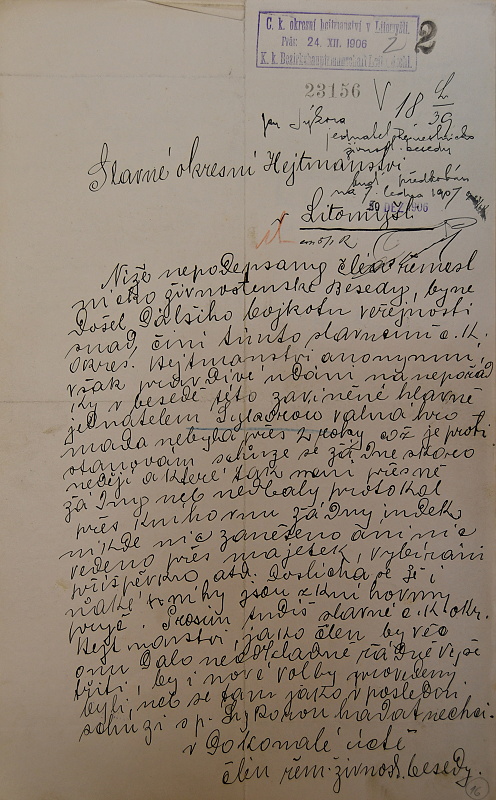 C. k. okresní hejtmanství v Litomyšli.
Präs: 24. XII. 1906 2
K. k. Bezirkshauptmannschaft
2
23156
18
39
jan Sýkora
jednatel řemeslnicko
živnost. besedy
předvolán
na 7. ledna 1907
30 DEZ 1906
Slavné okresní Hejtmanství
v Litomyšli
Níže nepodepsaný člen řemesl
nicko živnostenské Besedy, by ne
došel dalšího bojkotu veřejnosti
snad, činí tímto slavnému c. k.
okres. Hejtmanství anonymní,
však pravdivé udání na nepořád
ky v besedě této zaviněné hlavně
jednatelem Sykorou valná hro
mada nebyla přes 2 roky což je proti
stanovám schůze se žádné skoro
nedějí a které tak není přesně
žádný neb nedbalý protokol
přes knihovnu žádný indek
nikde nic zaneseno ani nic
vedeno přes majetek, vybírání
příspěvků atd. Doslýchá se že i
knihy jsou z knihovny
pryč. Prosím tudíž slavné c. k. okr.
Hejtmanství, jako člen by věc
onu dalo neodkladně řádně vyše
třiti, by i nové volby provedeny
byli, neb se tam jako v poslední
schůzi s p. Sykorou hádat nechci.
v Dokonalé úctě
člen řem. živnost. besedy.
16